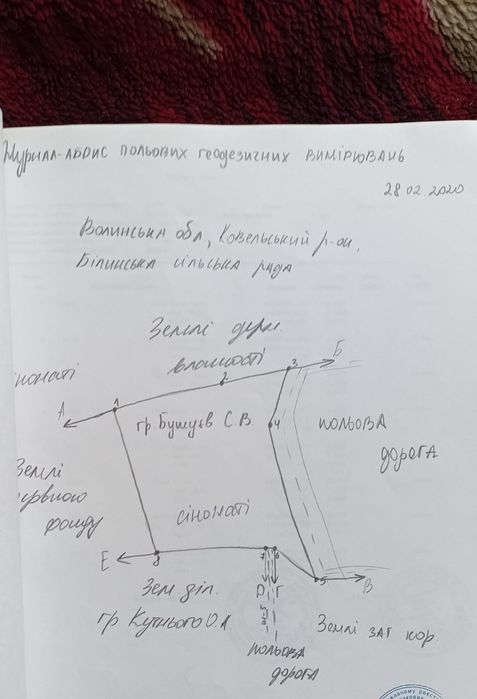 Журнал-абрис польових геодезичних вимірювань
28.02 2020
Волинська обл, Ковельський р-он,
Білинська сільська рада
Землі держ.
власності
Б
3
2
іножаті
1
А
гр. Бущуєв С.В.
4
польова
дорога
Землі
ервного
фонду
сіножаті
Е
8
7 6
5
В
Зем. діл.
D Г
гр. Кутнього О.Л
ш-5
Землі заг кор.
польова
дорога